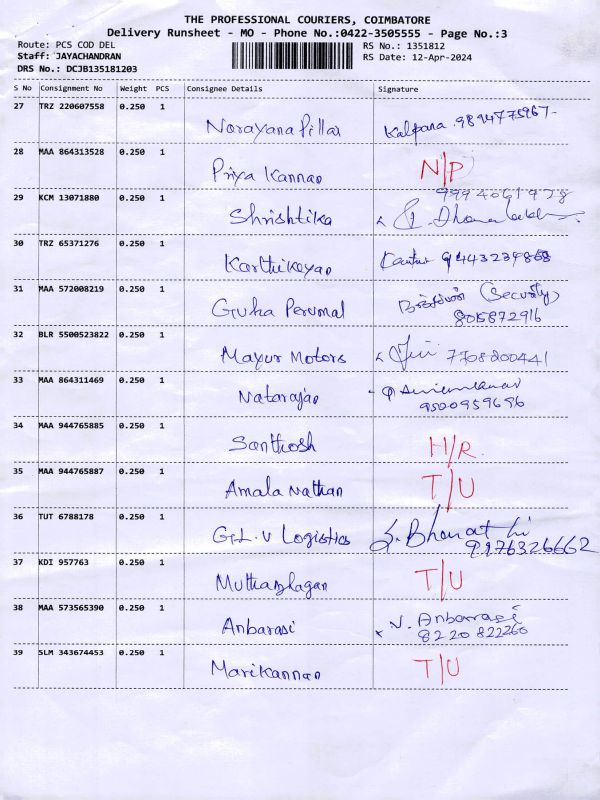 THE PROFESSIONAL COURIERS, COIMBATORE
Delivery Runsheet - MO - Phone No.:0422-3505555 - Page No.:3
Route: PCS COD DEL RS No.: 1351812
Staff: JAYACHANDRAN RS Date: 12-Apr-2024
DRS No.: DCJB135181203
S No Consignment No Weight PCS Consignee Details Signature
27 TRZ 220607558 0.250 1
Narayana Pillai Kalpana 9894775967
28 MAA 864313528 0.250 1
Priya Kannan N/P
29 KCM 13071880 0.250 1
Shrishtika
30 TRZ 65371276 0.250 1
Karthikeyan 9443239868
31 MAA 572008219 0.250 1
Guha Perumal (Security)
8015872916
32 BLR 5500523822 0.250 1
Mayur Motors 7708200441
33 MAA 864311469 0.250 1
Natarajan
9500959696
34 MAA 944765885 0.250 1
Santhosh H/R.
35 MAA 944765887 0.250 1
Amala Nathan T/U
36 TUT 6788178 0.250 1
G.L.V Logistics S. Bharathi
9176326662
37 KDI 957763 0.250 1
Muthazhagan T/U
38 MAA 573565390 0.250 1
Anbarasi V. Anbarasi
8220822260
39 SLM 343674453 0.250 1
Marikannan T/U